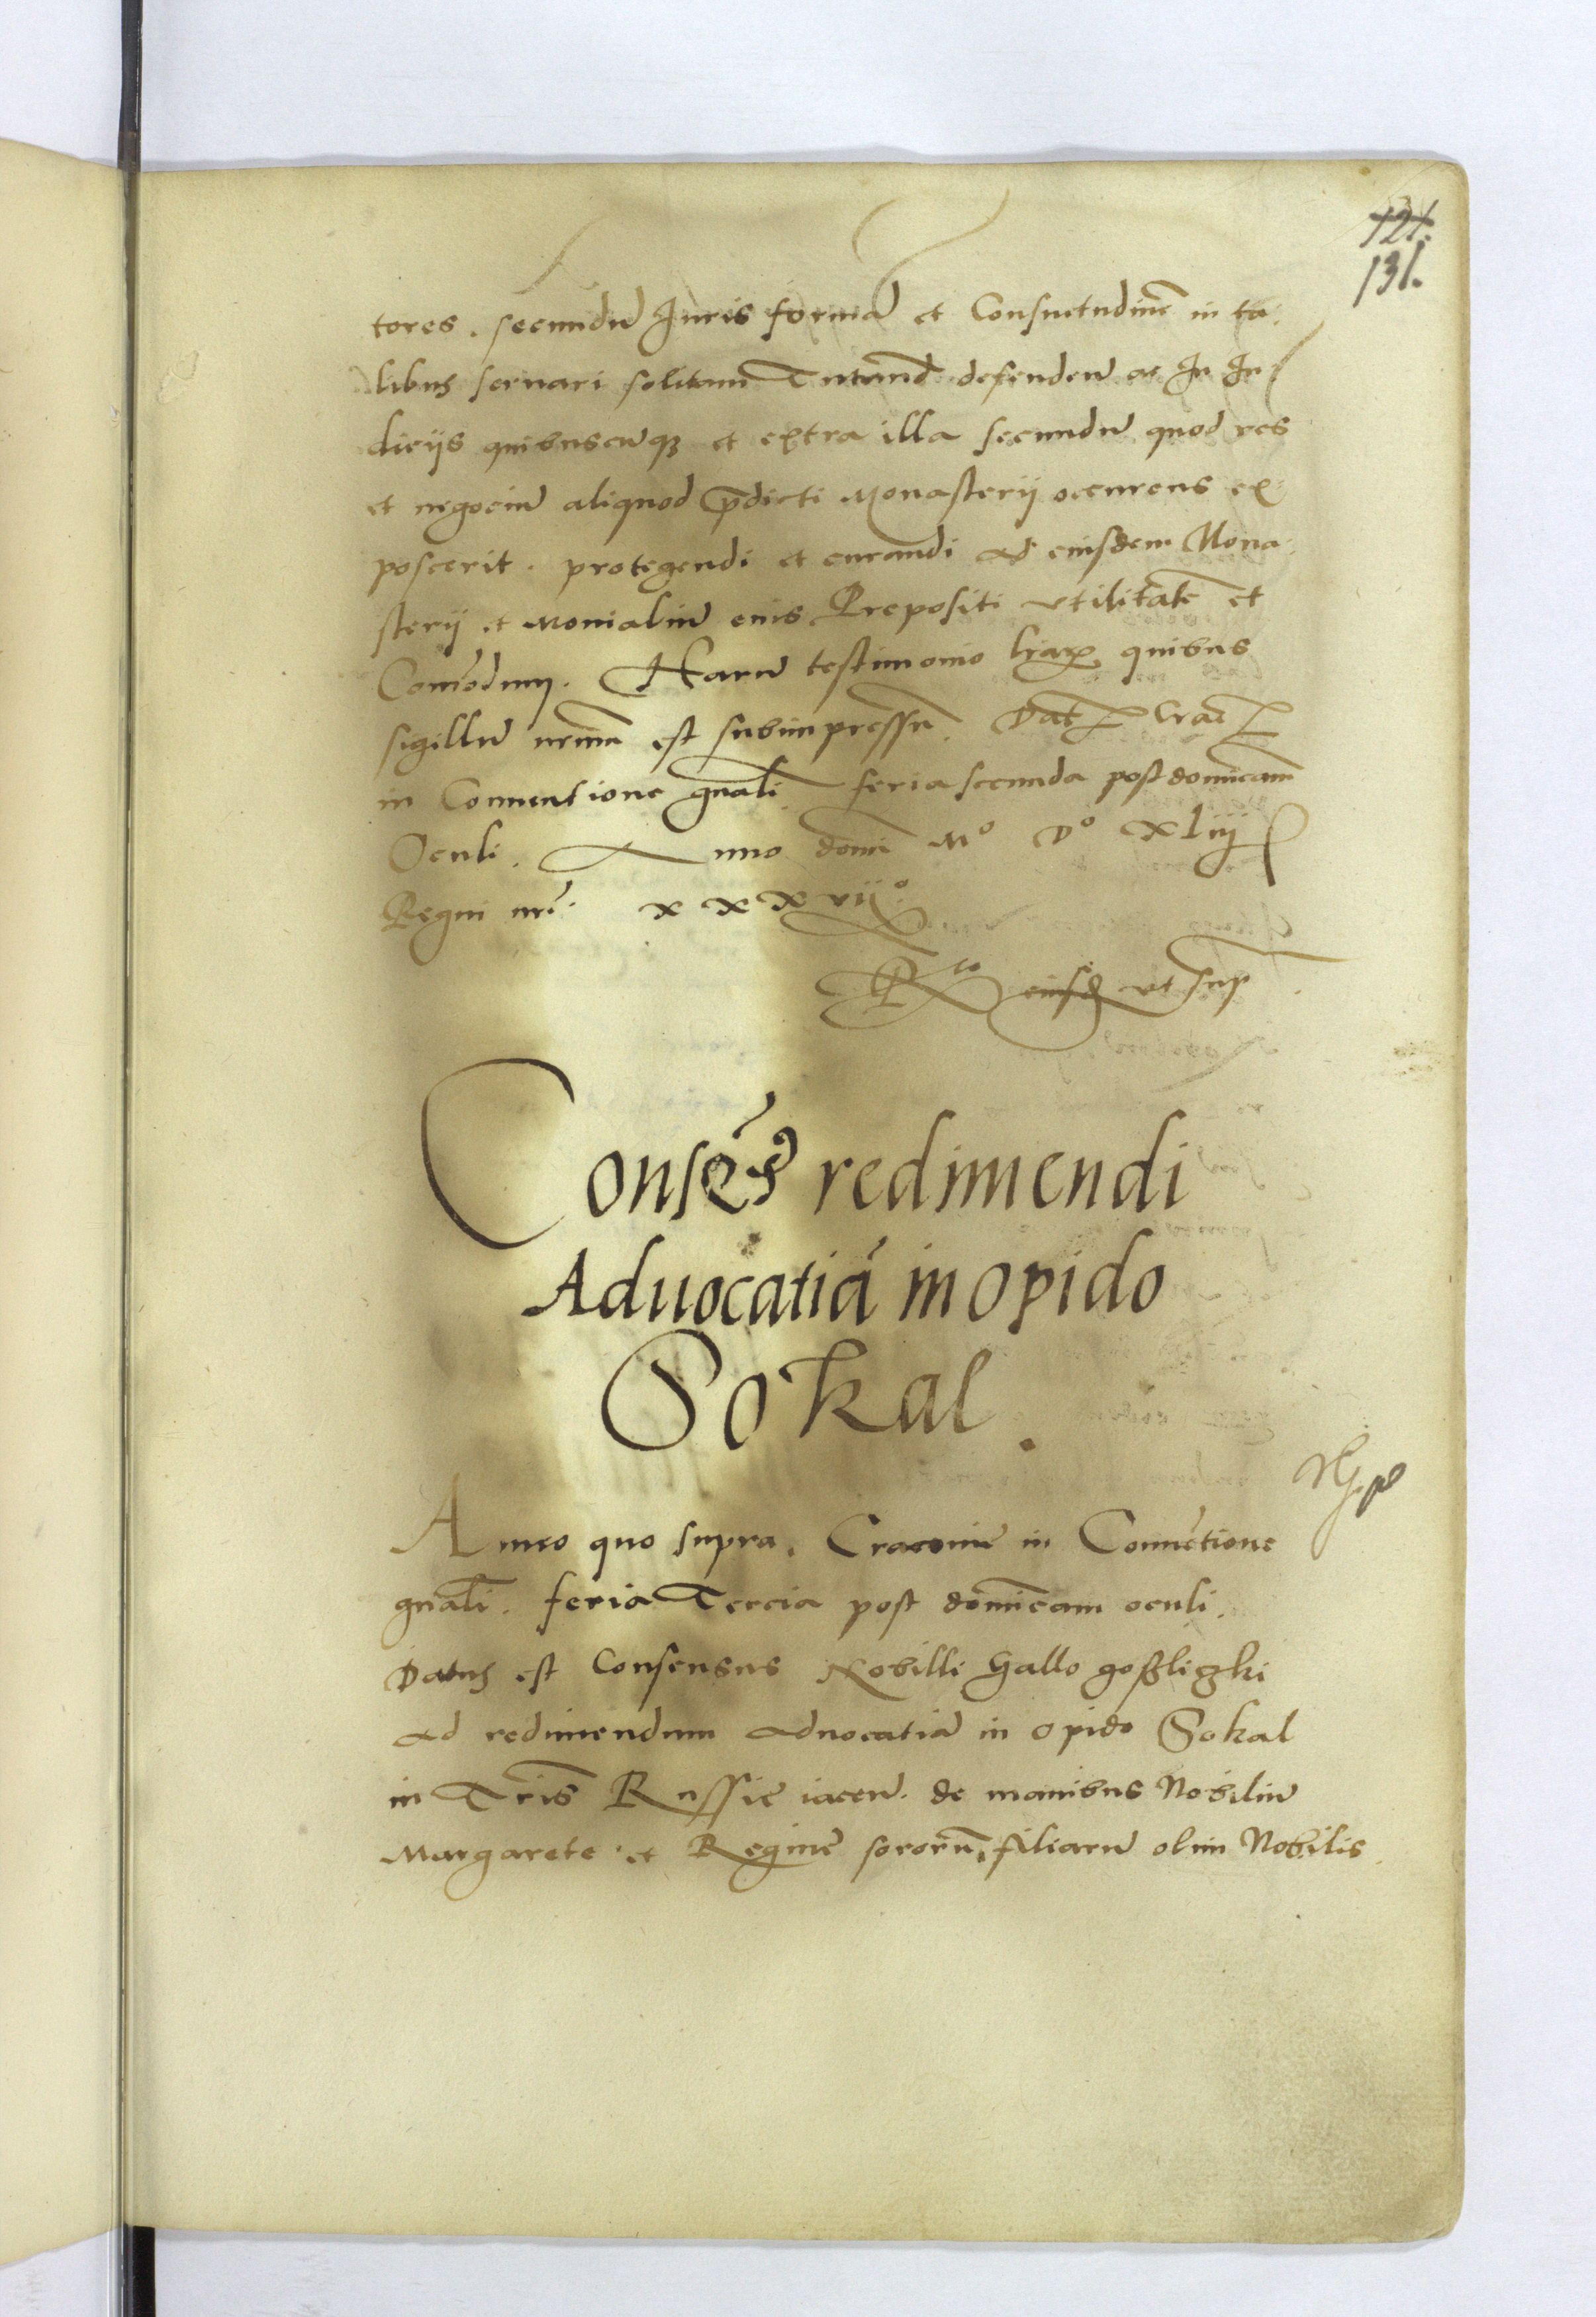 121.
131.
tores. secundū Iuris formā et Consuetudinē in ta
libus seruari solitam Tutand defendeñ ac In Iu
dicijs quibuscūqz et extra illa secundū quod res
et negociū aliquod p̄dicti Monasterij occurens ex
poscerit. protegendi et curandi ad eiusdem Mona
sterij et Monialiū eius Prepositi vtilitatē et
Com̄odum. Harū testimonio lrarꝝ quibus
sigillū nrm̄ est subimpressū. Dat Crac
in Conuentione gnali feria secunda post domicam
Oculi. Anno domi Mº Dº xliij
Regni nri xxxvijº
Rto eiusd vt sup
Consēs redimendi
Aduocatiā in opido
Sokal.
Anno quo supra. Cracouie in Conuētione
gnali. feria Tercia post domicam oculi.
Datus est Consensus Nobilli Gallo goßligki
ad redimendum aduocatiā in opido Sokal
in Tris Russie iaceñ. de manibus Nobiliū
Margarete et Regine sororū, filiarū olim Nobilis